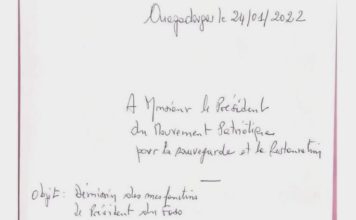 Ouagadougou le 24/01/2022
A Monsieur le Président
du Mouvement Patriotique
pour la sauvegarde et la Restauration
Objet : Démission de mes fonctions
de Président du Faso